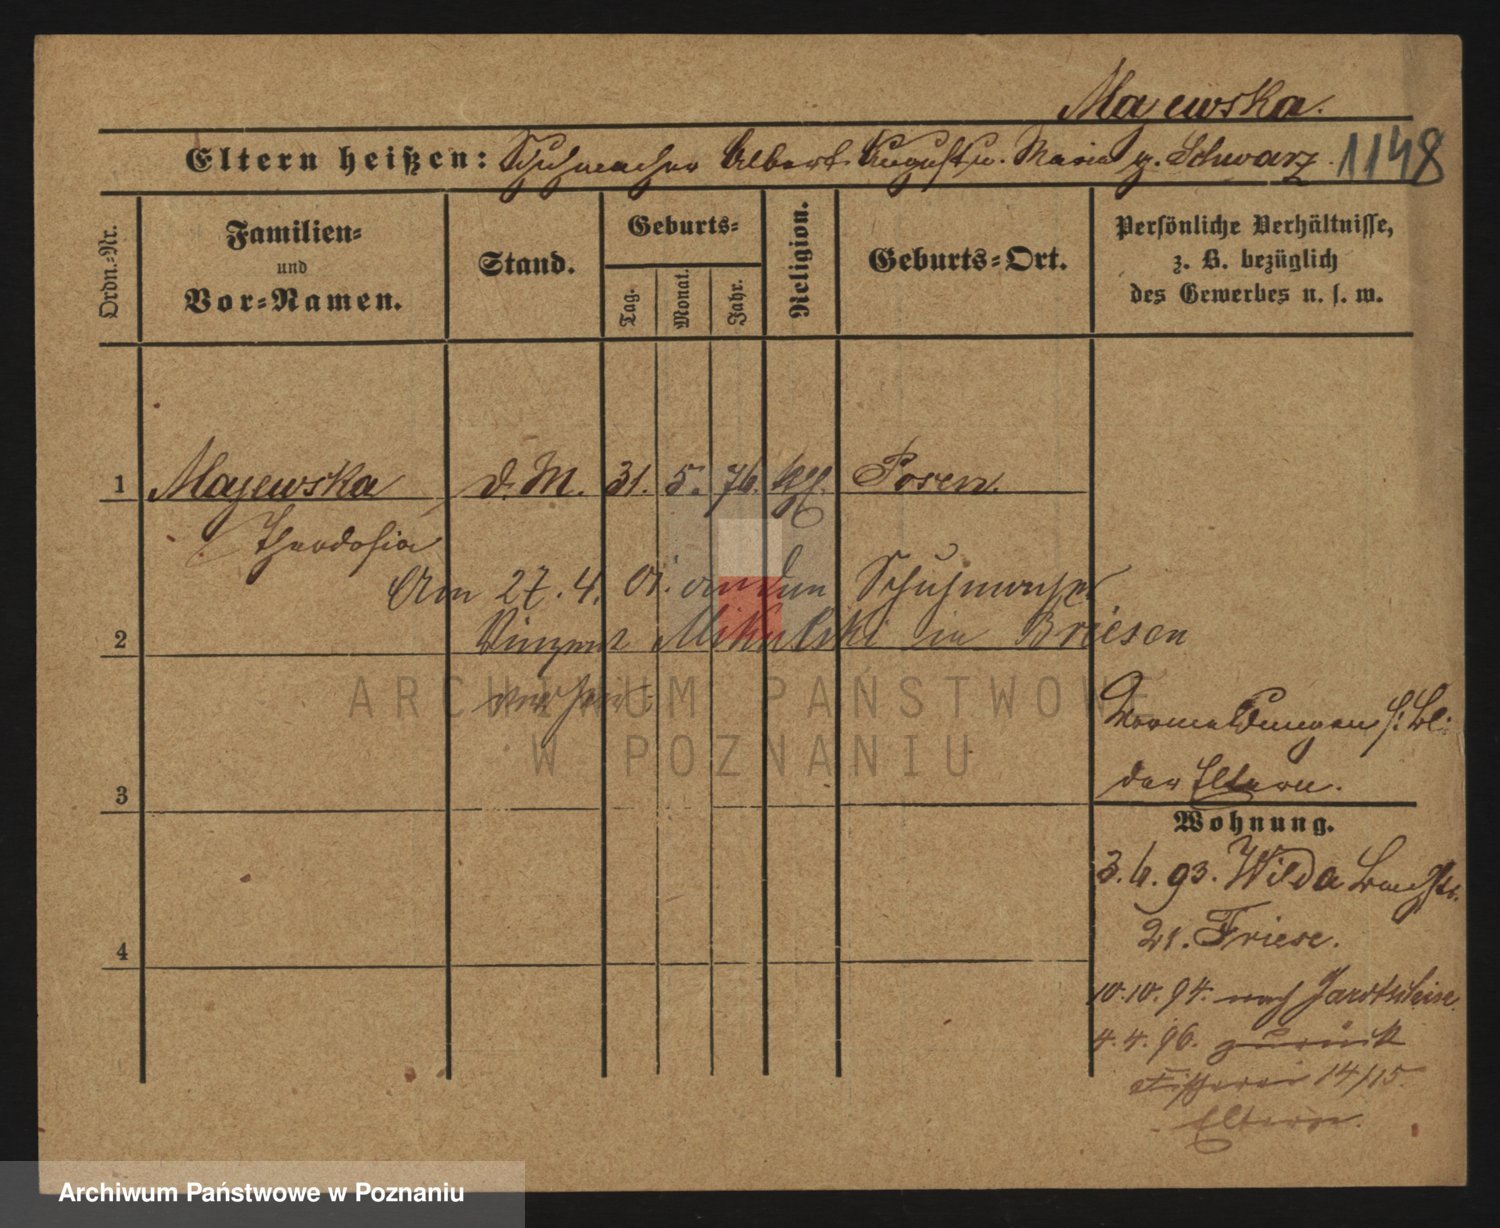 Majewska.
Eltern heißen: Schuhmacher Albert August u. Maria g. Schwarz.
1148
Ordn.-Nr.
Familien-
und
Vor-Namen.
Stand.
Geburts-
Tag.
Monat.
Jahr.
Religion.
Geburts-Ort.
Persönliche Verhältnisse,
z. B. bezüglich
des Gewerbes u. s. w.
1 Majewska d. M. 31. 5. 76. kth. Posen.
Theodosia
Am 27. 4. 01. an den Schuhmacher
2 Vinzent Mikulski in Briesen
verheir.
ARCHIWUM PAŃSTWOWE
W POZNANIU
Vormeldungen s. Bl.
der Eltern.
3
Wohnung.
3. 6. 93. Wilda
21. Friese.
4
10. 10. 94. nach
4. 4. 96. zurück
Fischerei 14/15.
Eltern.
Archiwum Państwowe w Poznaniu